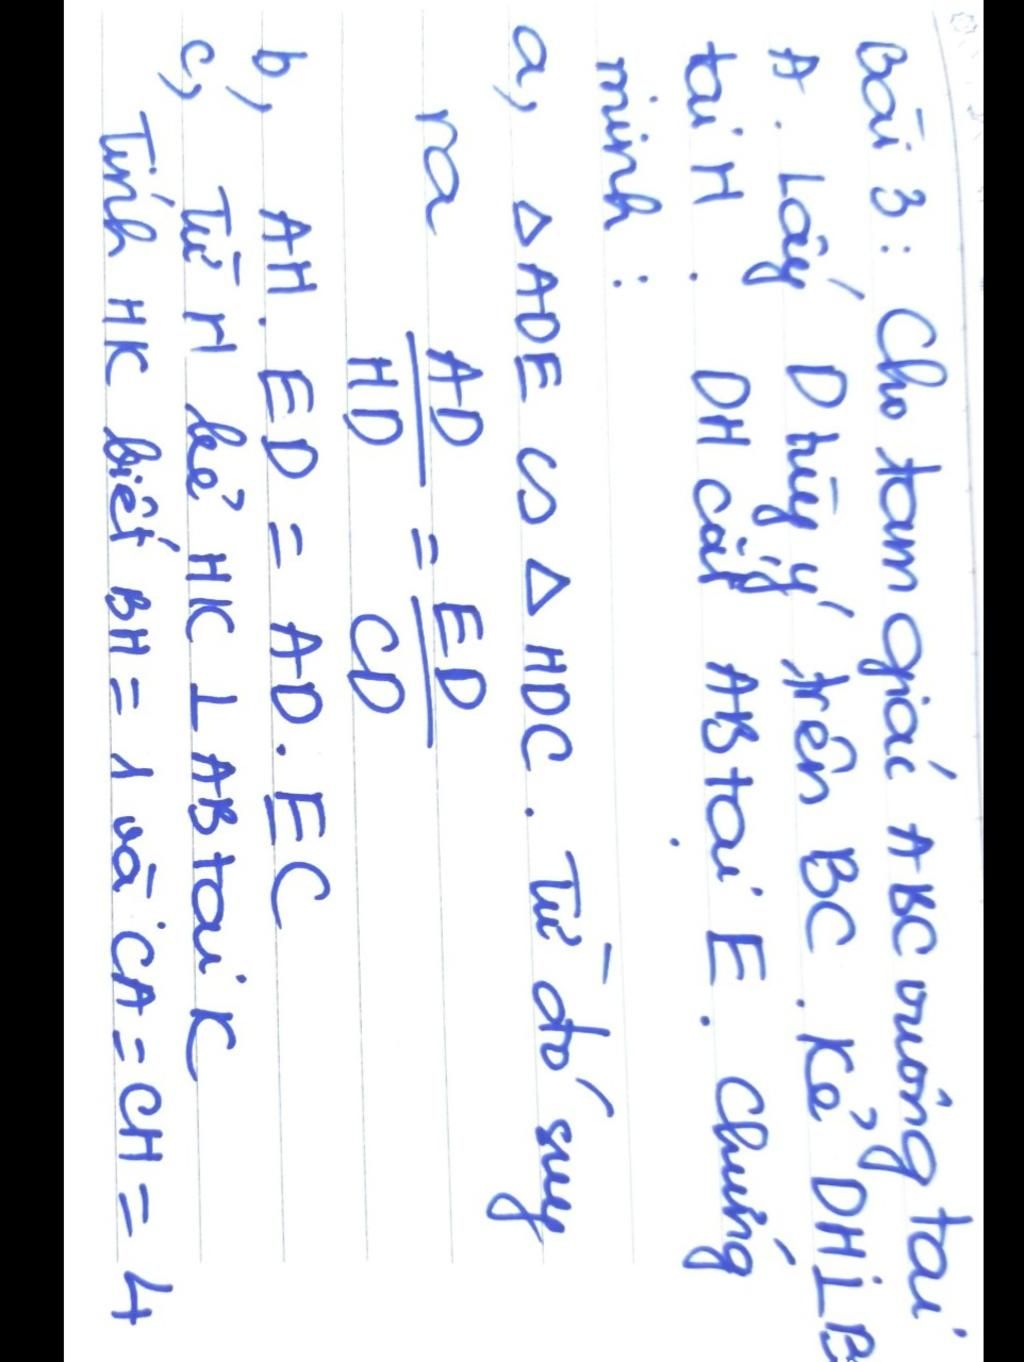 Bài 3: Cho tam giác ABC vuông tại
A. Lấy D tùy ý trên BC. Kẻ DH⊥B
tại H. DH cắt AB tại E. Chứng
minh:
a, ΔADE ᔕ ΔHDC. Từ đó suy
ra AD/HD = ED/CD
b, AH. ED = AD. EC
c, Từ H kẻ HK ⊥ AB tại K
Tính HK biết BH = 1 và CA = CH = 4